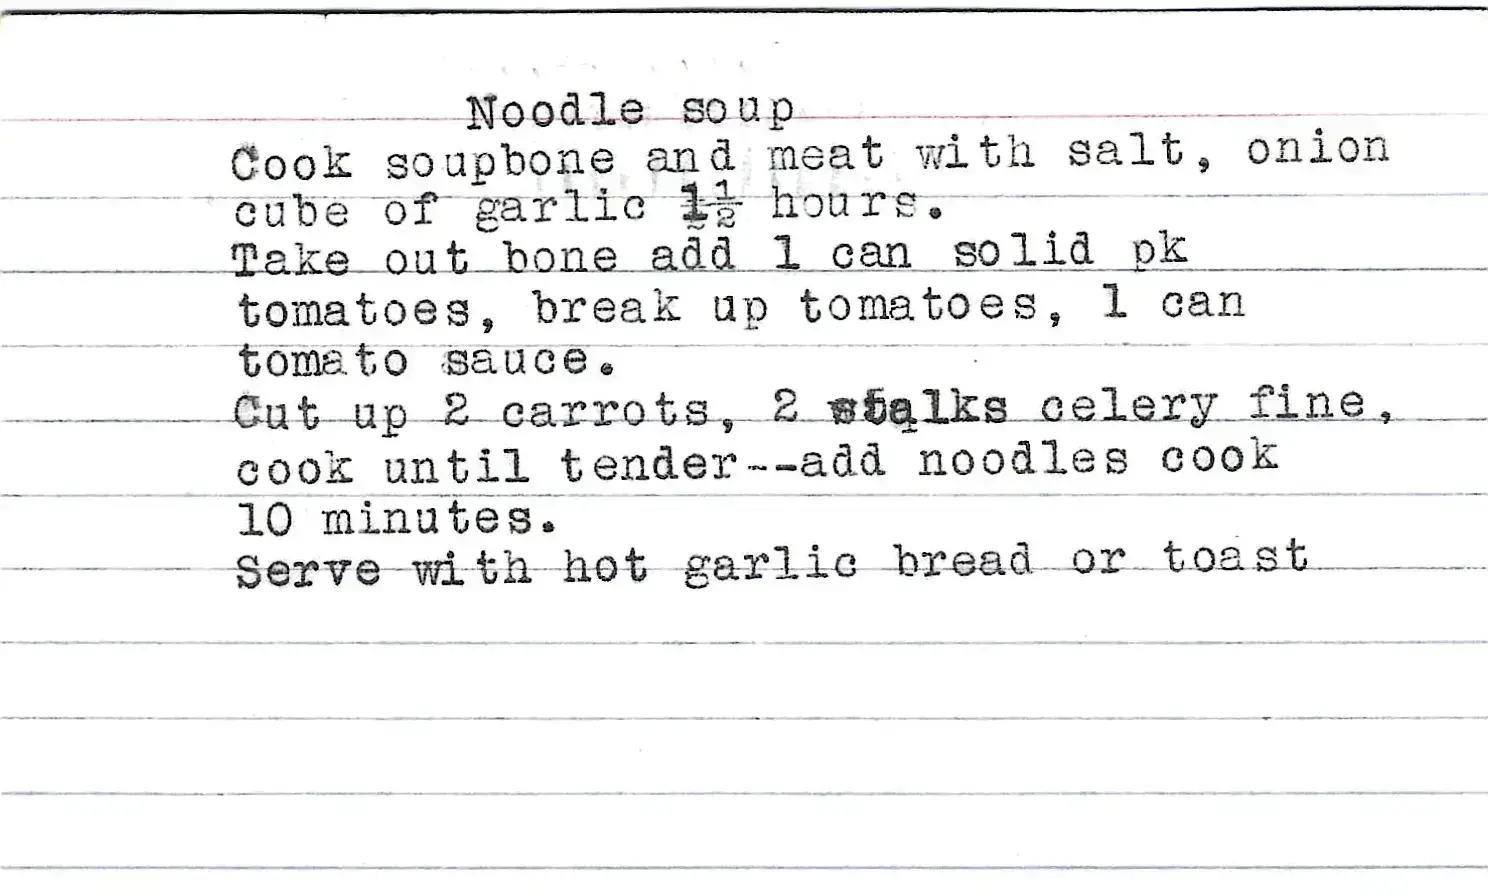 Noodle soup
Cook soupbone and meat with salt, onion
cube of garlic 1½ hours.
Take out bone add 1 can solid pk
tomatoes, break up tomatoes, 1 can
tomato sauce.
Cut up 2 carrots, 2 stalks celery fine,
cook until tender--add noodles cook
10 minutes.
Serve with hot garlic bread or toast